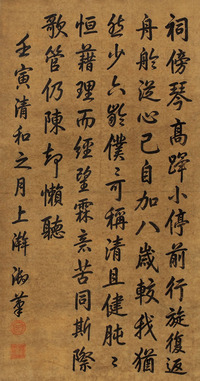 祠傍琴高蹕小停前行旋復返
舟舲從心已自加八歲較我猶
然少六齡僕僕可稱清且健肫肫
恒藉理而經望霖意苦同斯際
歌管仍陳却懶聽
壬寅清和之月上澣 御筆